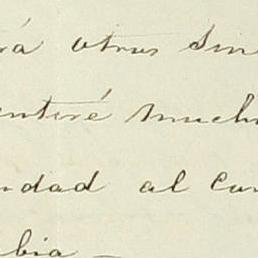 rá otros sin
entiré much
ndad al Cu
bia